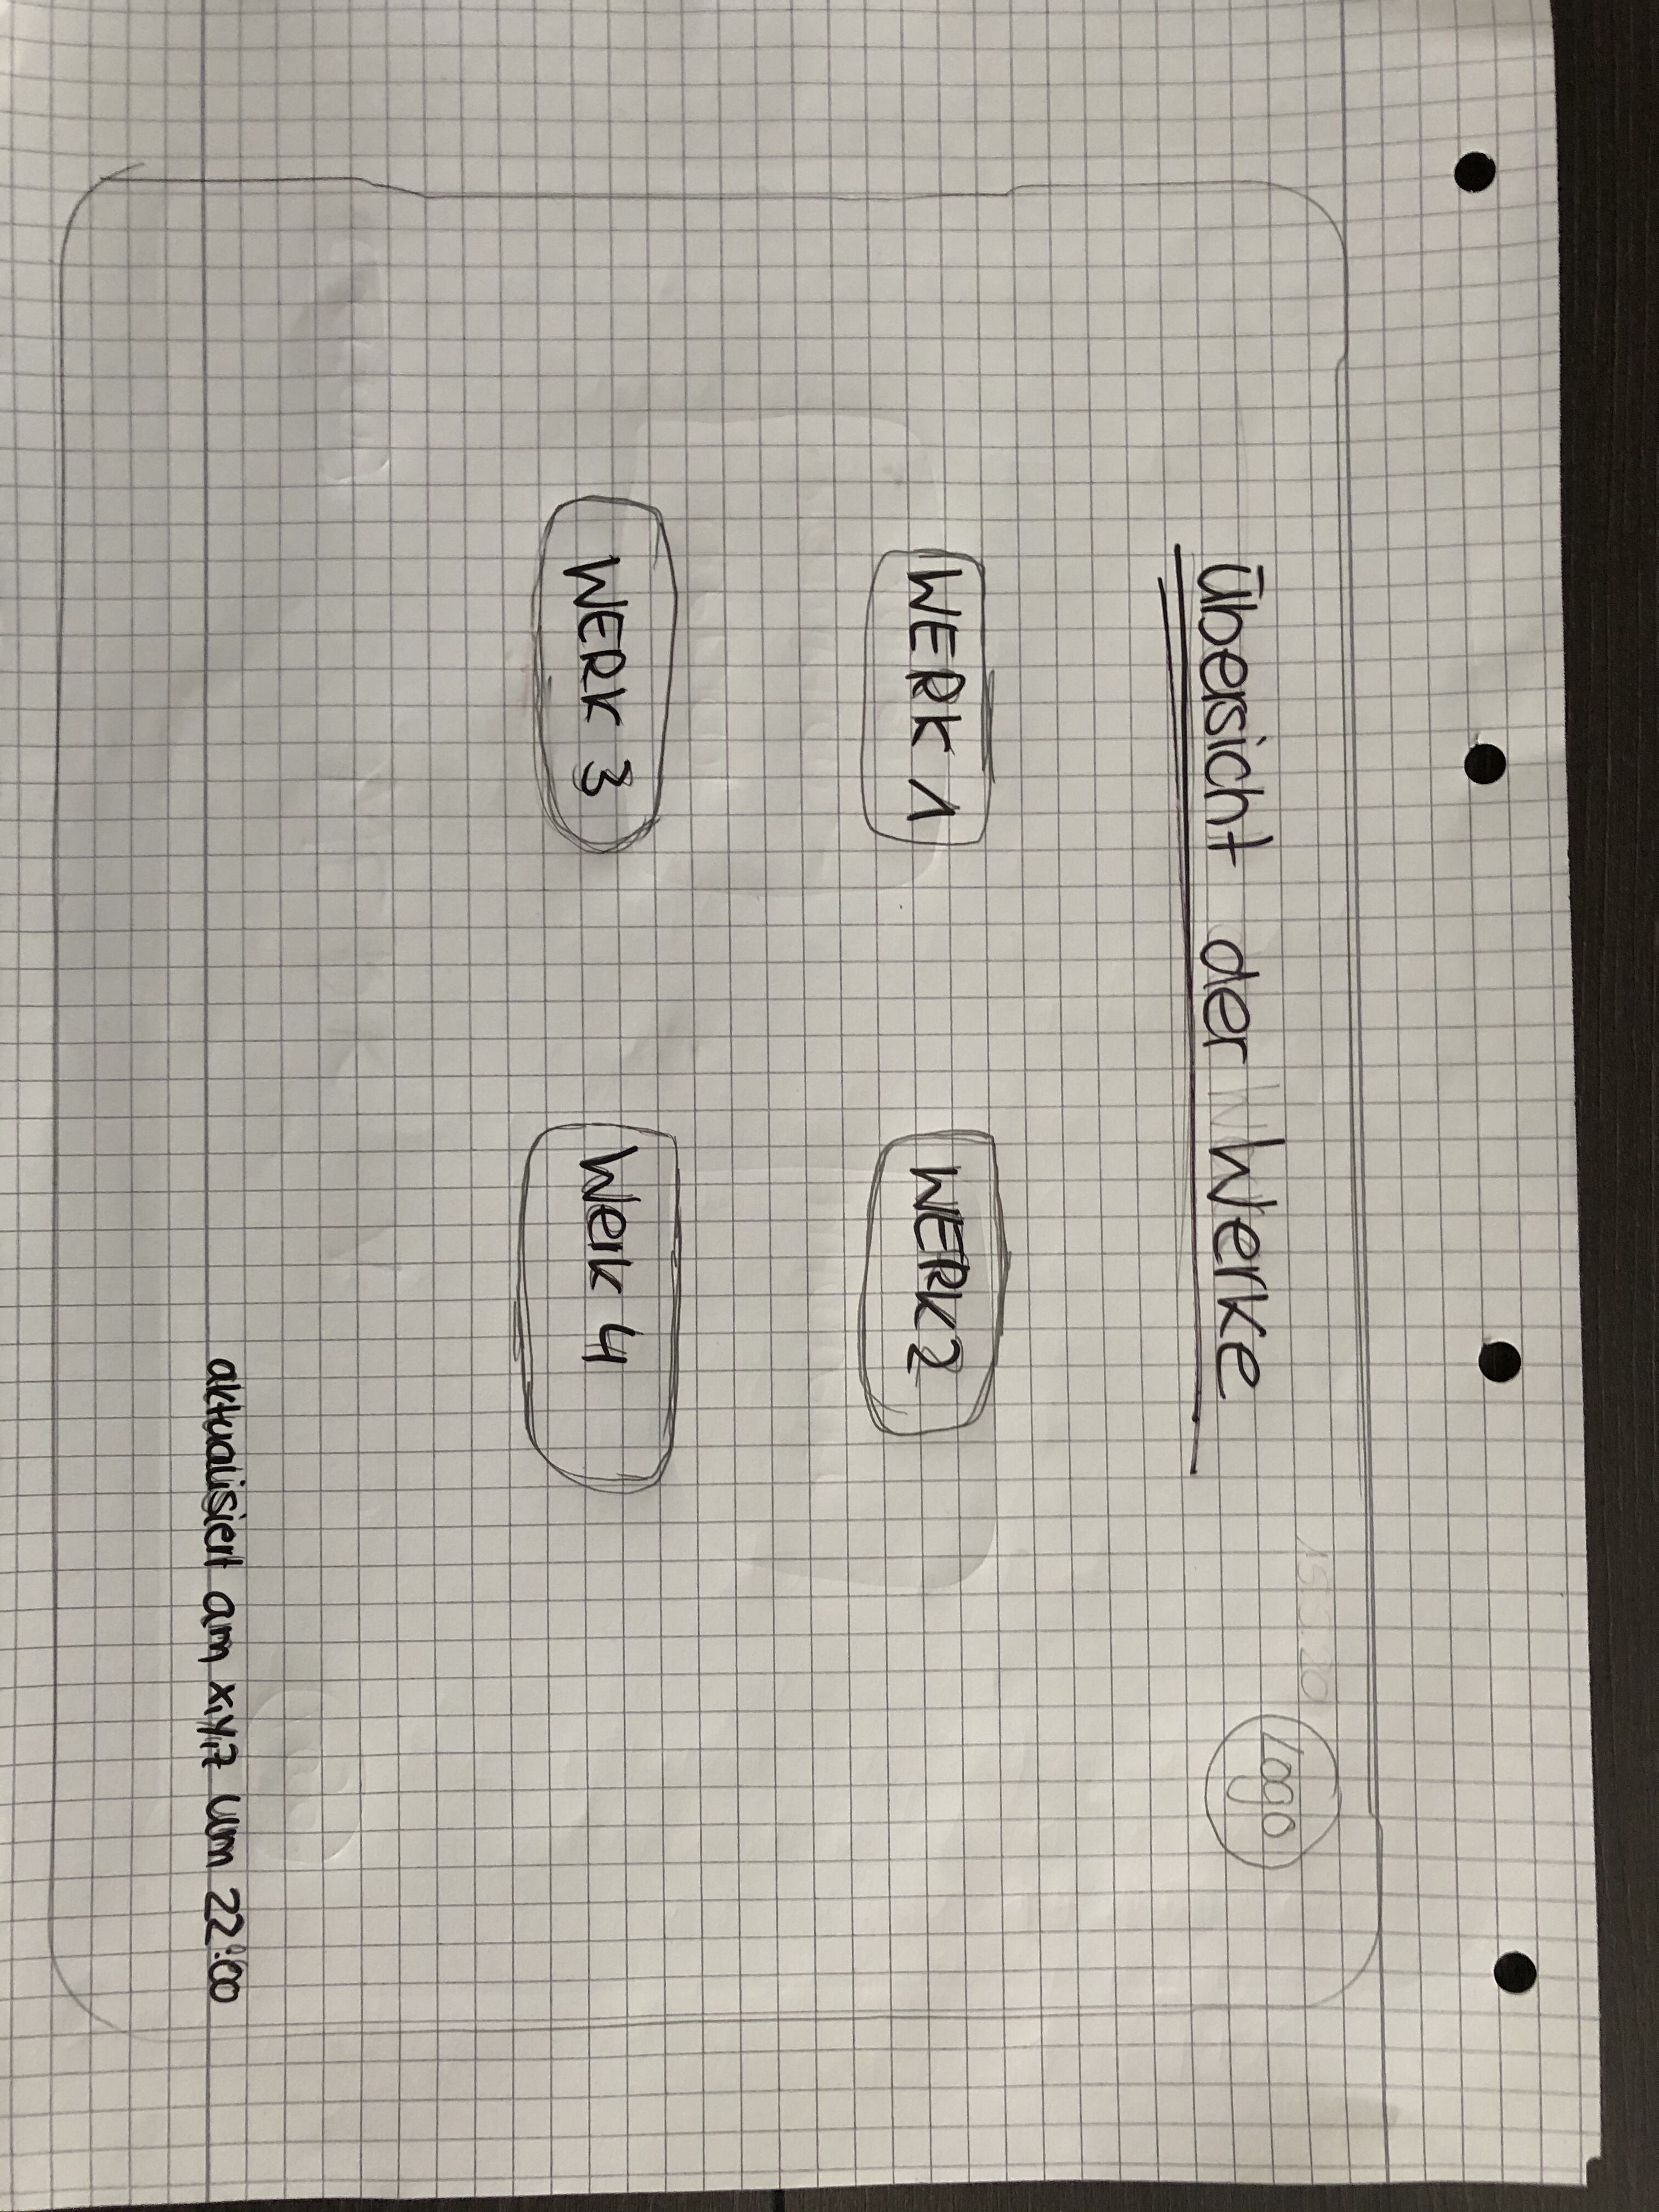 Übersicht der Werke
Logo
WERK 1
WERK 2
WERK 3
Werk 4
aktualisiert am x,y,z um 22:00